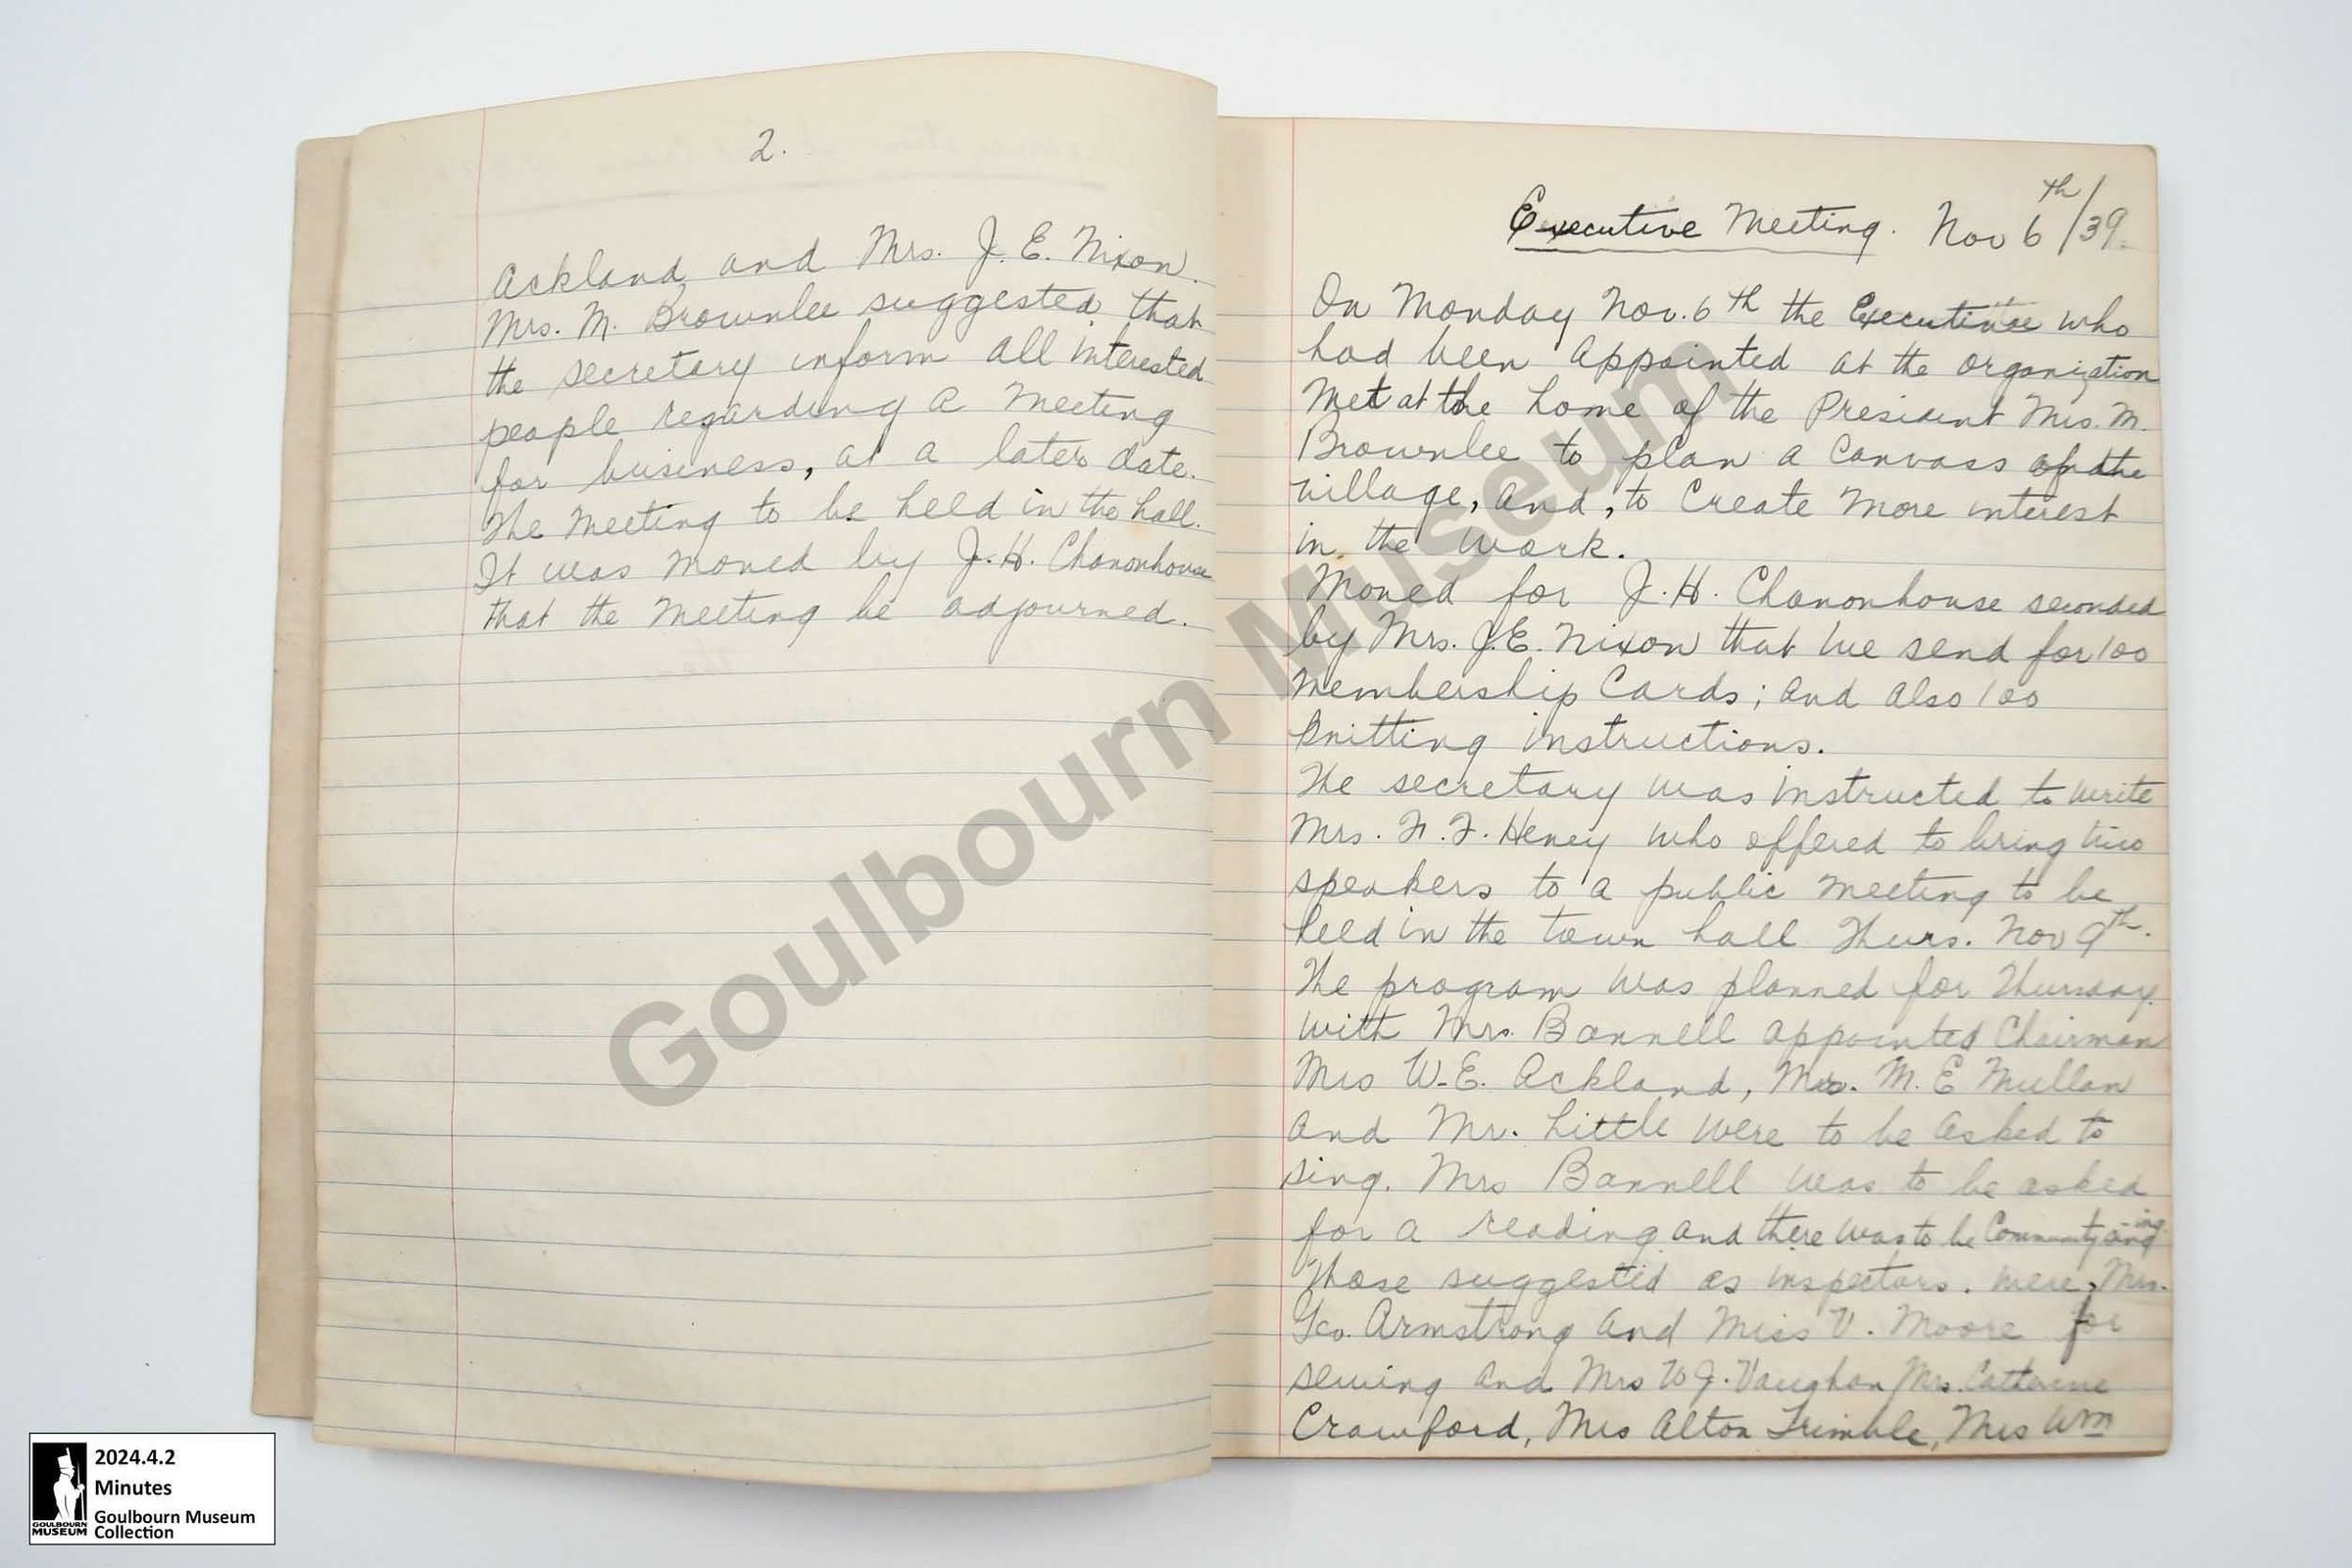 2.
Ackland and Mrs. J. E. Nixon.
Mrs. M. Brownlee suggested that
the secretary inform all interested
people regarding a meeting
for business, at a later date.
The meeting to be held in the hall.
It was moved by J. H. Chanonhouse
that the meeting be adjourned.
Executive Meeting. Nov 6th/39.
On Monday Nov. 6th the Executive who
had been appointed at the organization
met at the home of the President Mrs. M.
Brownlee to plan a canvass of the
village, and, to create more interest
in the work.
Moved for J. H. Chanonhouse seconded
by Mrs. J.E. Nixon that we send for 100
membership cards; and also 100
knitting instructions.
The secretary was instructed to write
Mrs. F. F. Heney who offered to bring two
speakers to a public meeting to be
held in the town hall Thurs. Nov 9th.
The program was planned for Thursday
with Mrs. Bannell appointed Chairman
Mrs W.E. Ackland, Mrs. M. E Mullan
and Mr. Little were to be asked to
sing. Mrs Bannell was to be asked
for a reading and there was to be Community
Those suggested as inspectors. were, Mrs.
Geo. Armstrong and Miss V. Moore for
sewing and Mrs W J. Vaughan, Mrs. Catherine
Crawford, Mrs Alton Trimble, Mrs Wm
Goulbourn Museum
2024.4.2
Minutes
Goulbourn Museum
Collection
GOULBOURN
MUSEUM